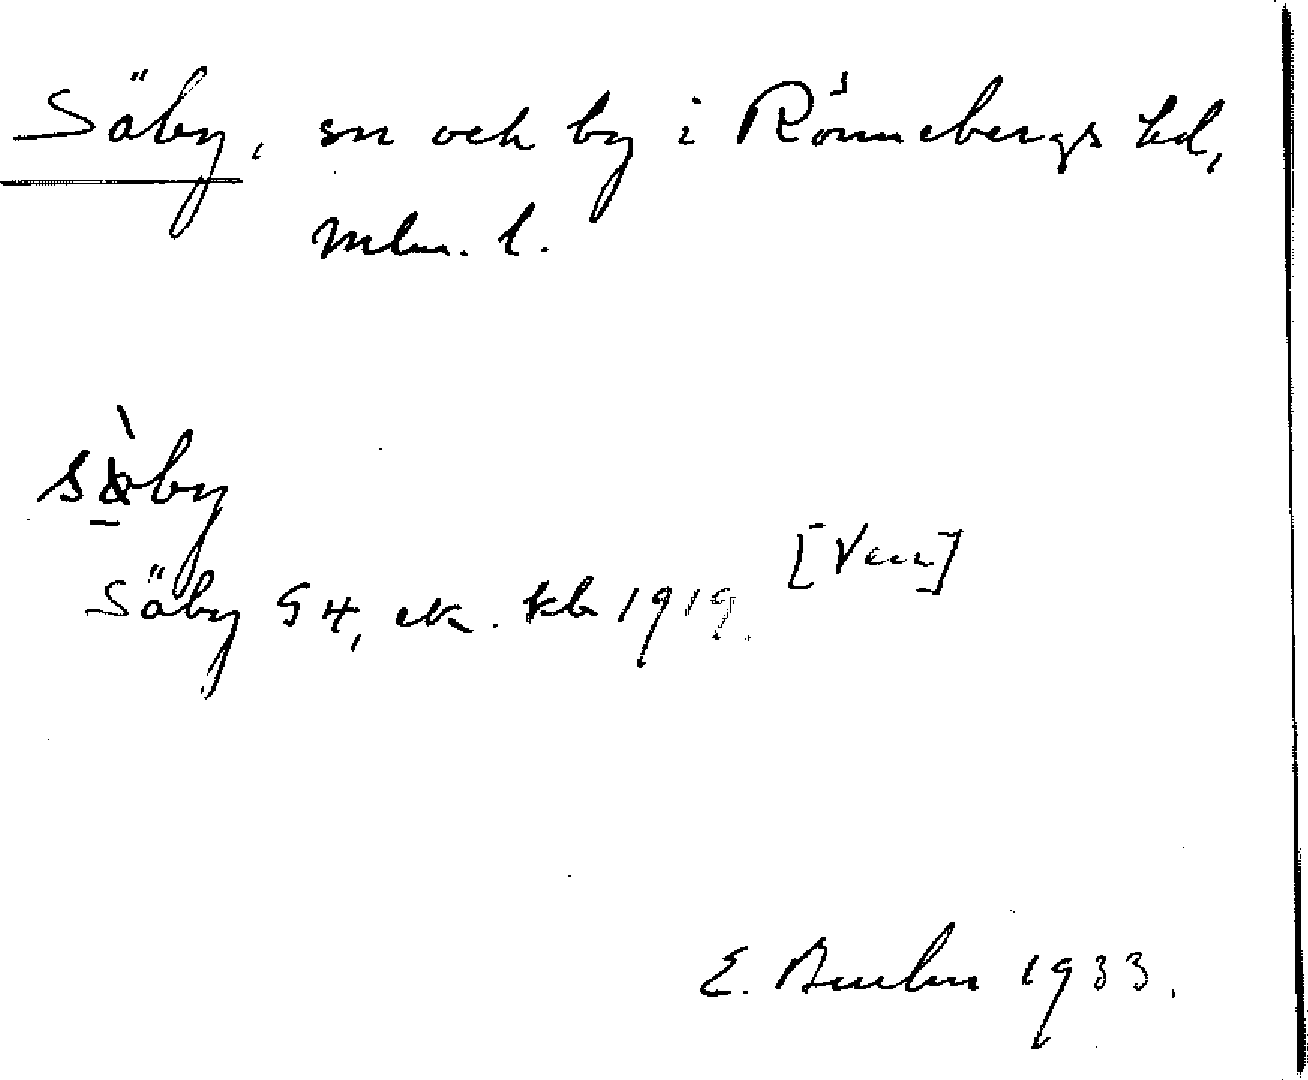 Säby, sn och by i Rönnebergs hd,
Mlm. l.
by
Säby S 4, ek. kb 1919. [Ven]
E. 1933.